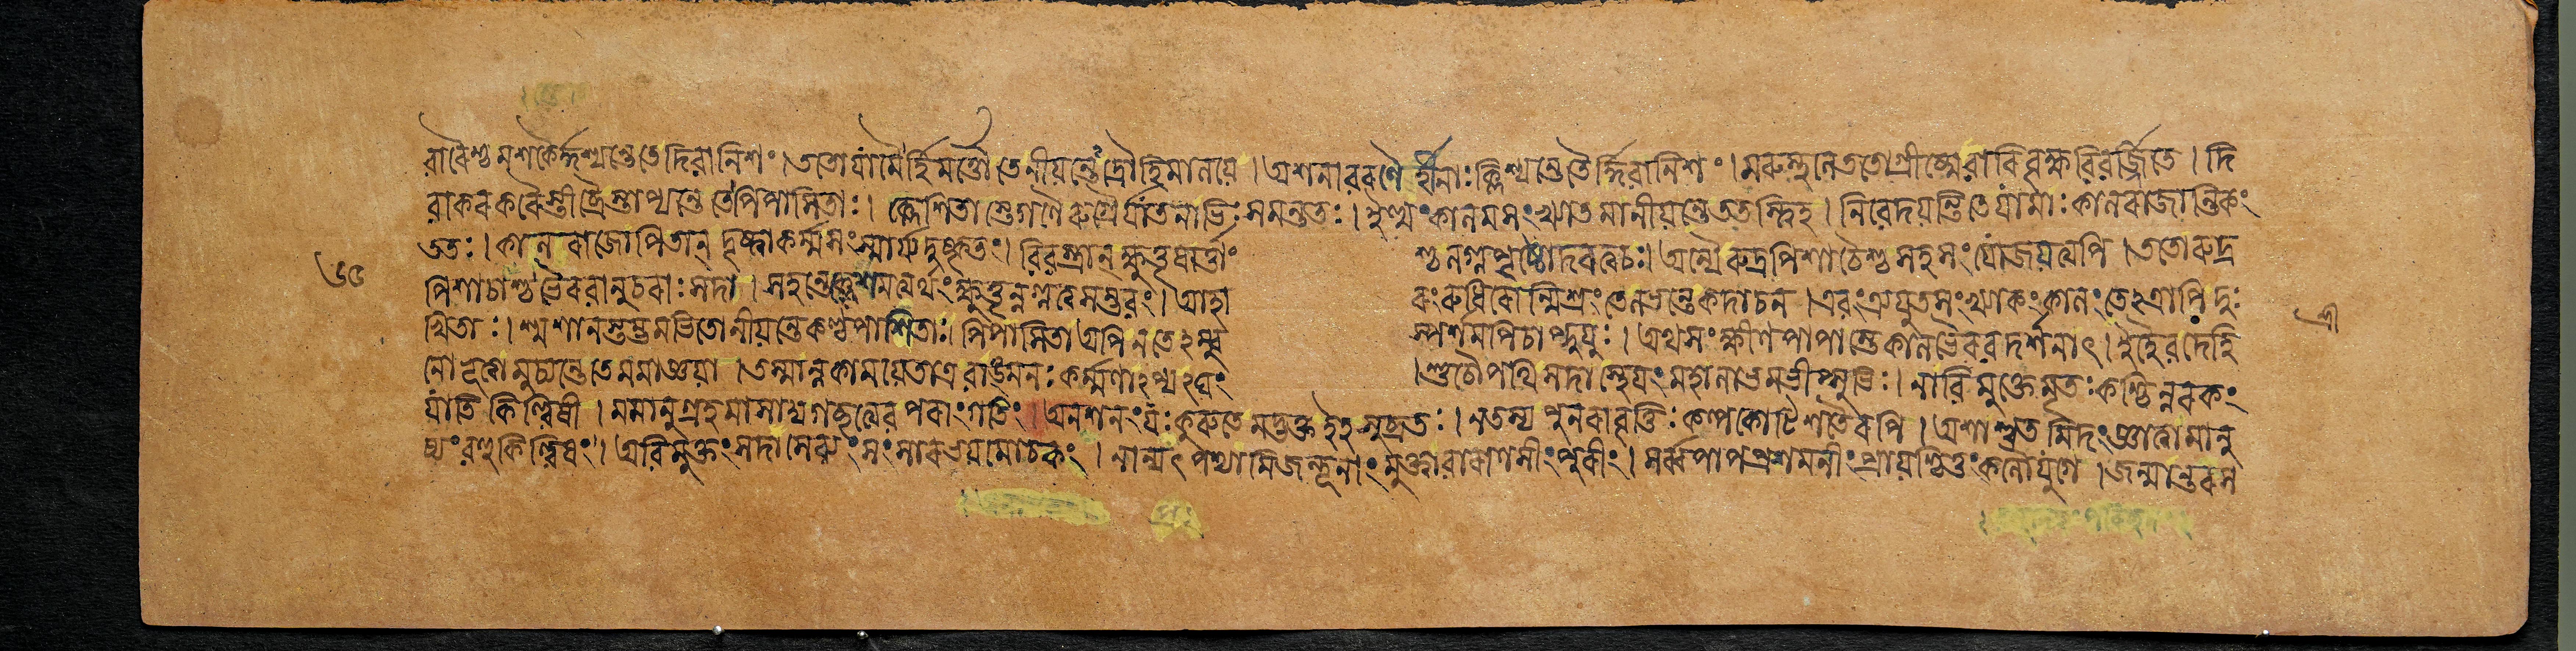 বাবৈশ্চ মশকৈর্দ্দশ্যন্তে তে দিবানিশং। ততো যামৈর্হিমর্ত্তৌ তে নীয়ন্তেঽদ্রৌ হিমালয়ে। অশনাবরণৈর্হীনাঃ ক্লিশ্যন্তে তৈর্দ্দিবানিশং। মরুস্থলে ততো গ্রীষ্মে বারিবৃক্ষবিবর্জ্জিতে। দি
বাকরকরৈস্তীব্রৈস্তাপ্যন্তে তে পিপাসিতাঃ। ক্লেশিতাস্তে গণৈরুগ্রৈর্যাতনাভিঃ সমন্ততঃ। ইত্থং কালমসংখ্যাতমানীয়ন্তে ততস্ত্বিহ। নিবেদয়ন্তি তে যামাঃ কালরাজান্তিকং
ততঃ। কালরাজোপি তান্ দৃষ্ট্বা কর্ম্ম সংস্মার্য্য দুষ্কৃতং। বিবস্ত্রান্ ক্ষুত্তৃষার্ত্তাং শ্চ লগ্নপৃষ্ঠোদরত্বচঃ। অন্যৈ রুদ্রপিশাচৈশ্চ সহ সংযোজয়ত্যপি। ততো রুদ্র
পিশাচাশ্চ ভৈরবানুচরাঃ সদা। সহন্তে ক্লেশমত্যর্থং ক্ষুত্তৃন্নগ্নত্বসম্ভবং। আহা রং রুধিরোন্মিশ্রং তে লভন্তে কদাচন। এবং ত্র্যযুতসংখ্যাকং কালং তেঽত্রাপি দুঃ
খিতাঃ। শ্মশানস্তম্ভমভিতো নীয়ন্তে কণ্ঠপাশিতাঃ। পিপাসিতা অপি ন তেঽম্বু স্পর্শমপি চাপ্নুয়ুঃ। অথ সংক্ষীণপাপাস্তে কালভৈরবদর্শনাৎ। ইহৈব দেহি
নো ভূত্বা মুচ্যন্তে তে মমাজ্ঞয়া। তস্মান্ন কাময়েতাত্র বাঙ্মনঃকর্ম্মণাঽপ্যঽঘং। শুচৌ পথি সদা স্থেয়ং মহালাভমভীপ্সুভিঃ। নাবিমুক্তে মৃতঃ কশ্চিন্নরকং
যাতি কিল্বিষী। মমানুগ্রহমাসাদ্য গচ্ছত্যেব পরাং গতিং। অনশনং যঃ কুরুতে মদ্ভক্ত ইহ সুব্রতঃ। ন তস্য পুনরাবৃত্তিঃ কল্পকোটিশতৈরপি। অশাশ্বতমিদং জ্ঞাত্বা মানু
ষ্যং বহুকিল্বিষং। অবিমুক্তং সদা সেব্যং সংসারভয়মোচকং। নান্যৎ পশ্যামি জন্তূনাং মুক্ত্বা বারাণসীং পুরীং। সর্ব্বপাপপ্রশমনীং প্রায়শ্চিত্তং কলৌ যুগে। জন্মান্তরস
শ্রী